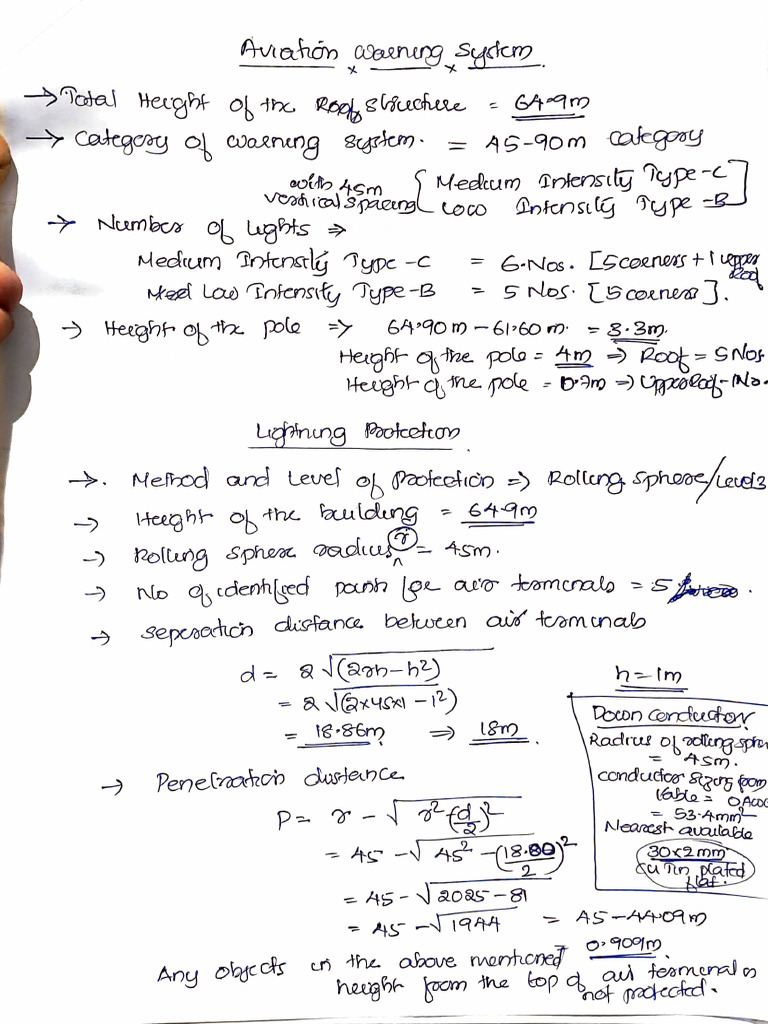 Aviation Warning System
→ Total Height of the Roof Structure = 64.9m
→ Category of warning system. = 45-90m category
with 45m vertical spacing [Medium Intensity Type-C
Low Intensity Type-B]
→ Number of Lights ⇒
Medium Intensity Type-C = 6.Nos. [5 corners + 1 upper Roof
Low Intensity Type-B = 5 Nos. [5 corners].
→ Height of the pole ⇒ 64.90m - 61.60m. = 3.3m.
Height of the pole = 4m ⇒ Roof = 5 Nos
Height of the pole = 0.7m ⇒ Upper Roof - 1No.
Lightning Protection
→. Method and Level of Protection ⇒ Rolling sphere/Level3
→ Height of the building = 64.9m
→ Rolling sphere radius r = 45m.
→ No of identified points for air terminals = 5
→ seperation distance between air terminals
d = 2√(2rh-h²)
h=1m
= 2√(2×45×1 - 1²)
= 18.86m ⇒ 18m.
Down conductor
Radius of rolling sphe
= 45m.
conductor sizing from
table =
= 53.4mm²
Nearest available
30×2mm
cu Tin plated
flat.
→ Penetration distance
P = r - √r²(d/2)²
= 45 - √45² - (18.00/2)²
= 45 - √2025 - 81
= 45 - √1944 = 45 - 44.09m
= 0.909m.
Any objects in the above mentioned
height from the top of air terminal is
not protected.